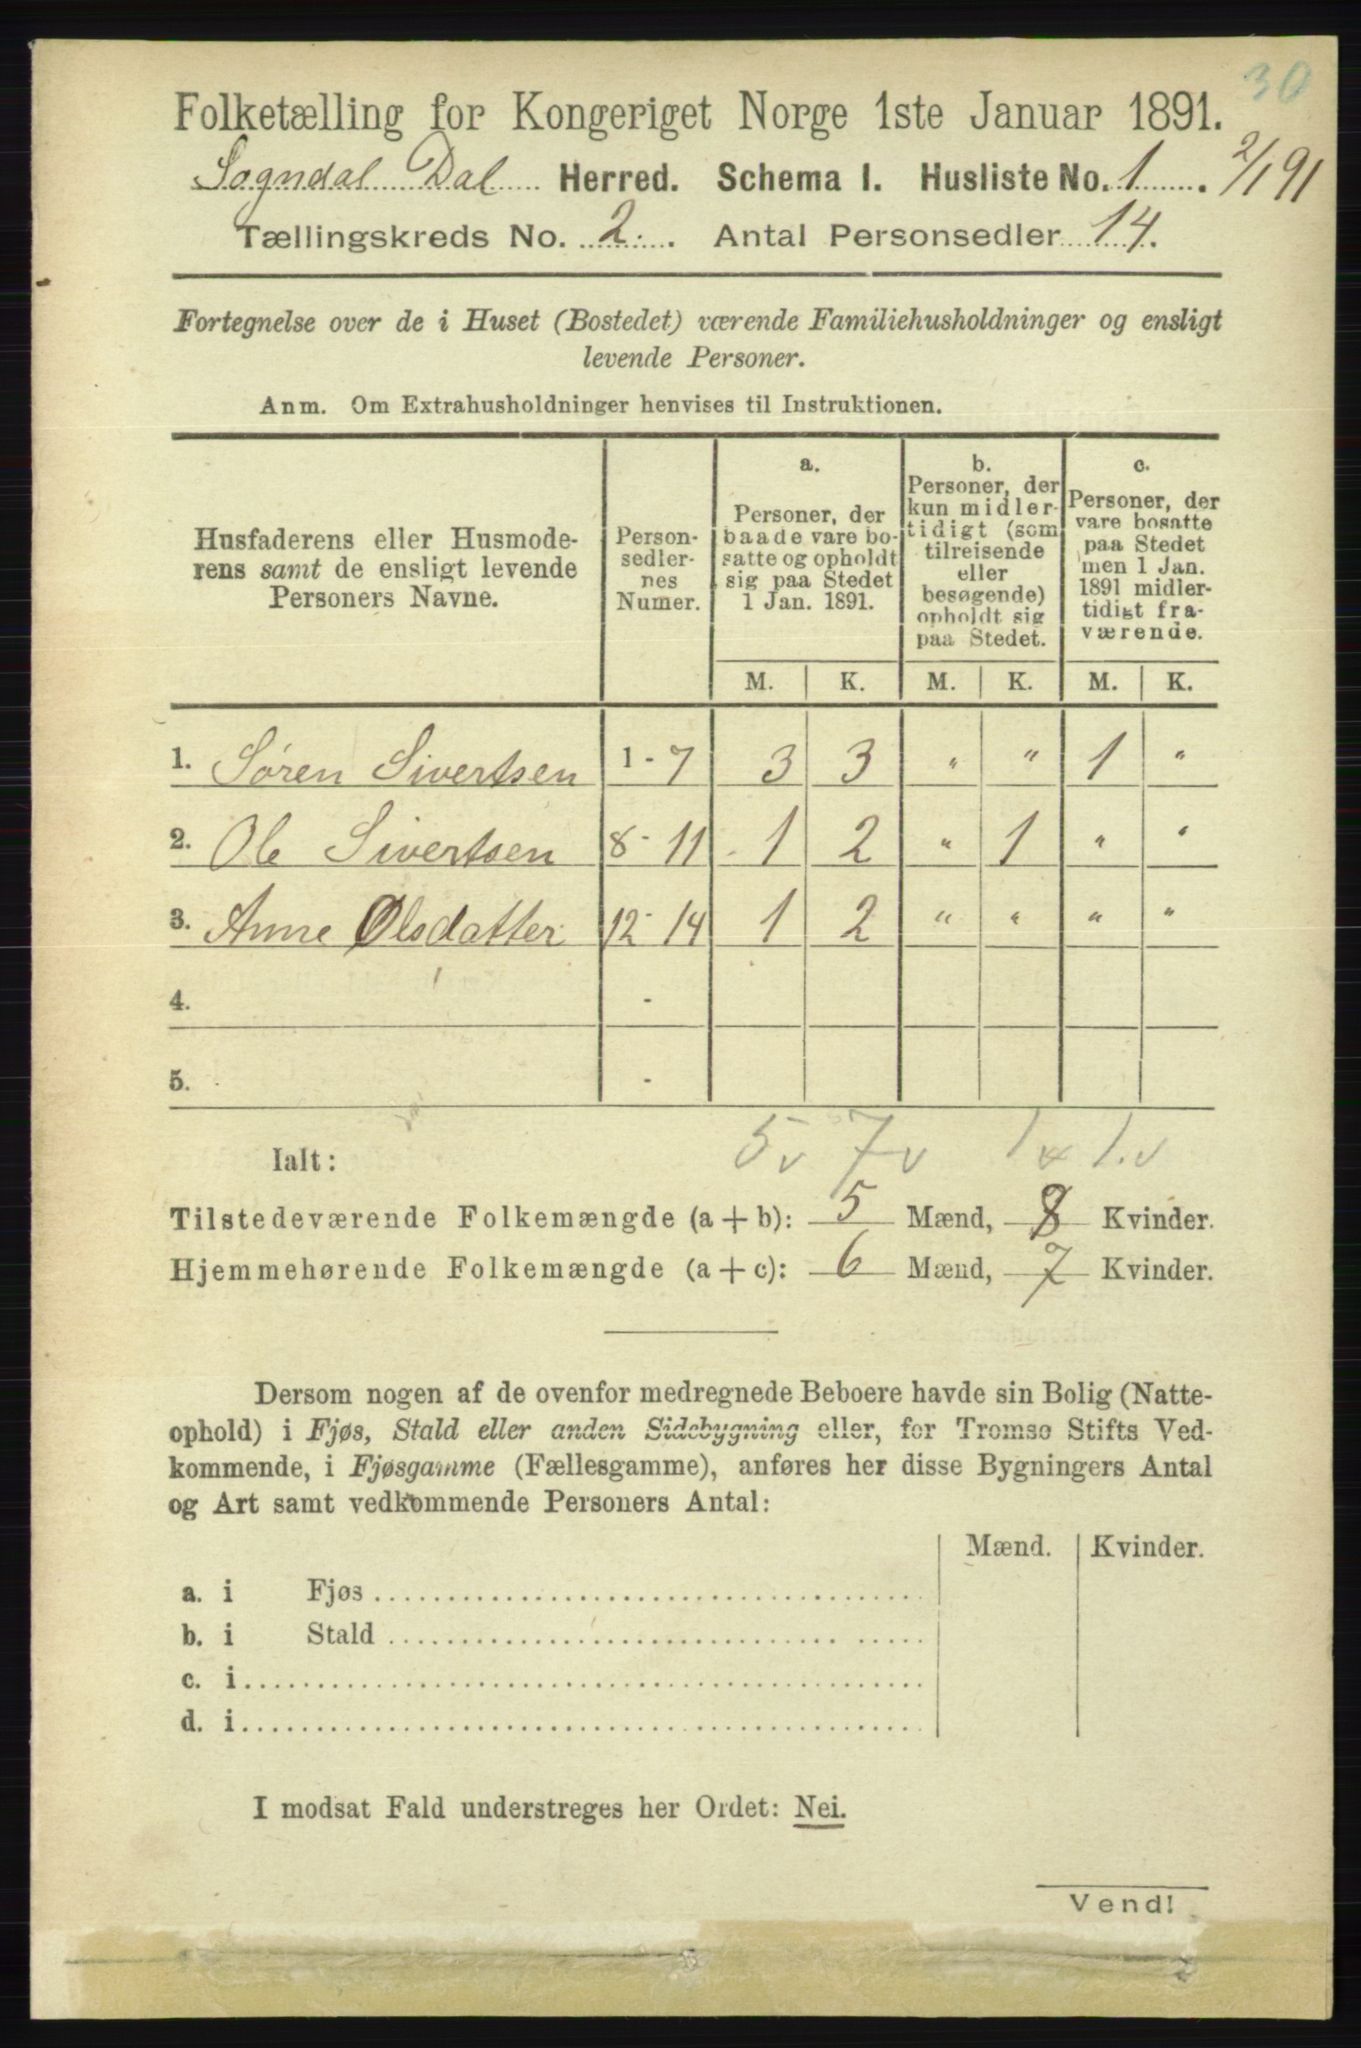 30
Folketælling for Kongeriget Norge 1ste Januar 1891.
Sogndal Dal Herred. Schema I. Husliste No. 1. 2/1 91
Tællingskreds No. 2. Antal Personsedler 14.
Fortegnelse over de i Huset (Bostedet) værende Familiehusholdninger og ensligt
levende Personer.
Anm. Om Extrahusholdninger henvises til Instruktionen.
Husfaderens eller Husmode-
rens samt de ensligt levende
Personers Navne.
Person-
sedler-
nes
Numer.
a.
Personer, der
baade vare bo-
satte og opholdt
sig paa Stedet
1 Jan. 1891.
b.
Personer, der
kun midler-
tidigt (som
tilreisende
eller
besøgende)
opholdt sig
paa Stedet.
c.
Personer, der
vare bosatte
paa Stedet
men 1 Jan.
1891 midler-
tidigt fra-
værende.
M. K. M. K. M. K.
1. Søren Sivertsen 1 - 7 3 3 " " 1 "
2. Ole Sivertsen 8 - 11 1 2 " 1 " "
3. Anne Olsdatter 12 - 14 1 2 " " " "
4. -
5. -
5 v 7 v 1 v 1. v
Ialt:
Tilstedeværende Folkemængde (a + b): 5 Mænd, 8 Kvinder.
Hjemmehørende Folkemængde (a + c): 6 Mænd, 7 Kvinder.
Dersom nogen af de ovenfor medregnede Beboere havde sin Bolig (Natte-
ophold) i Fjøs, Stald eller anden Sidebygning eller, for Tromsø Stifts Ved-
kommende, i Fjøsgamme (Fællesgamme), anføres her disse Bygningers Antal
og Art samt vedkommende Personers Antal:
Mænd. Kvinder.
a. i Fjøs
b. i Stald
c. i
d. i
I modsat Fald understreges her Ordet: Nei.
Vend!